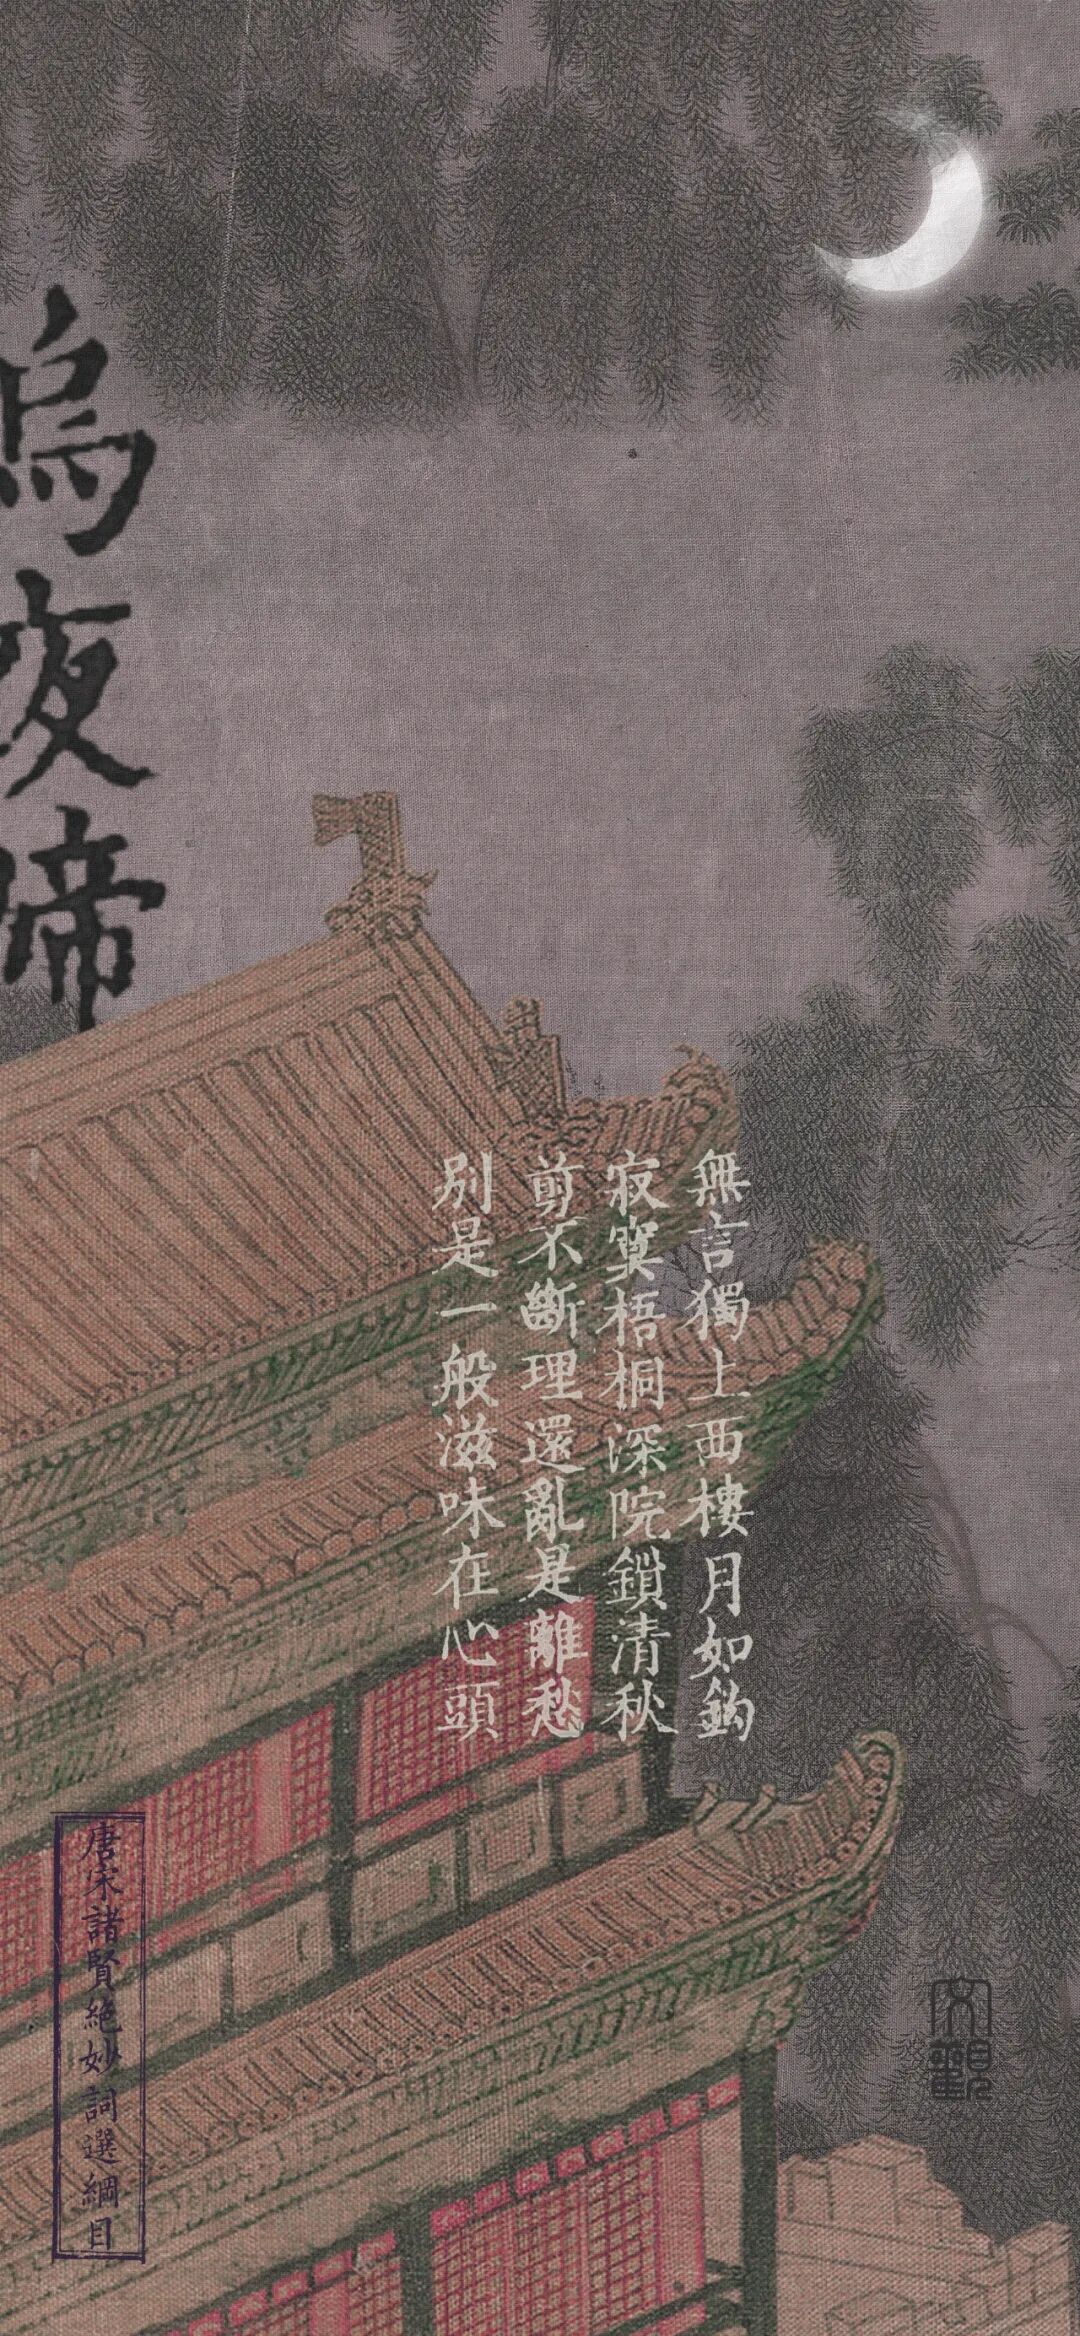 烏夜啼
無言獨上西樓月如鈎
寂寞梧桐深院鎖清秋
剪不斷理還亂是離愁
別是一般滋味在心頭
唐宋諸賢絕妙詞選綱目
文觀